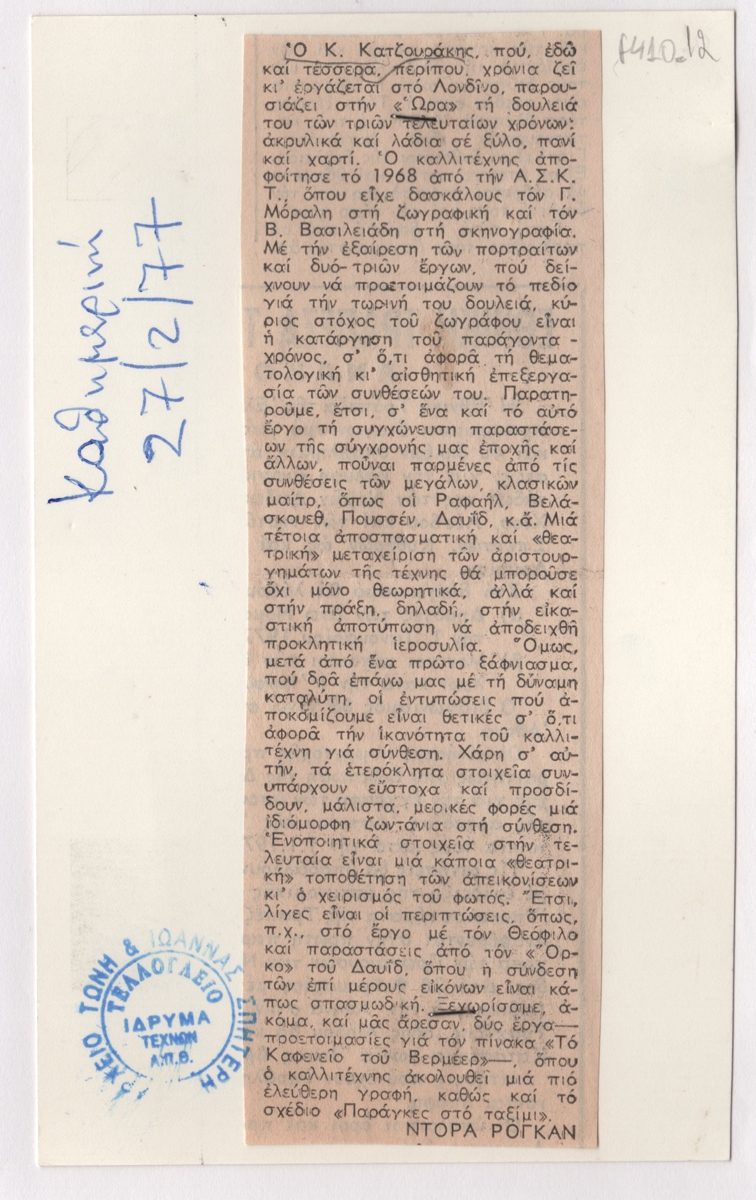 Ὁ Κ. Κατζουράκης, πού, ἐδῶ
καί τέσσερα, περίπου, χρόνια ζεῖ
κι' ἐργάζεται στό Λονδῖνο, παρου-
σιάζει στήν «Ὥρα» τή δουλειά
του τῶν τριῶν τελευταίων χρόνων:
ἀκρυλικά καί λάδια σέ ξύλο, πανί
καί χαρτί. Ὁ καλλιτέχνης ἀπο-
φοίτησε τό 1968 ἀπό τήν Α.Σ.Κ.
Τ., ὅπου εἶχε δασκάλους τόν Γ.
Μόραλη στή ζωγραφική καί τόν
Β. Βασιλειάδη στή σκηνογραφία.
Μέ τήν ἐξαίρεση τῶν πορτραίτων
καί δυό-τριῶν ἔργων, πού δεί-
χνουν νά προετοιμάζουν τό πεδίο
γιά τήν τωρινή του δουλειά, κύ-
ριος στόχος τοῦ ζωγράφου εἶναι
ἡ κατάργηση τοῦ παράγοντα -
χρόνος, σ' ὅ,τι ἀφορᾶ τή θεμα-
τολογική κι' αἰσθητική ἐπεξεργα-
σία τῶν συνθέσεών του. Παρατη-
ροῦμε, ἔτσι, σ' ἕνα καί τό αὐτό
ἔργο τή συγχώνευση παραστάσε-
ων τῆς σύγχρονής μας ἐποχῆς καί
ἄλλων, ποὖναι παρμένες ἀπό τίς
συνθέσεις τῶν μεγάλων, κλασικῶν
μαίτρ, ὅπως οἱ Ραφαήλ, Βελά-
σκουεθ, Πουσσέν, Δαυΐδ, κ.ἄ. Μιά
τέτοια ἀποσπασματική καί «θεα-
τρική» μεταχείριση τῶν ἀριστουρ-
γημάτων τῆς τέχνης θά μποροῦσε
ὄχι μόνο θεωρητικά, ἀλλά καί
στήν πράξη, δηλαδή, στήν εἰκα-
στική ἀποτύπωση νά ἀποδειχθῆ
προκλητική ἱεροσυλία. Ὅμως,
μετά ἀπό ἕνα πρῶτο ξάφνιασμα,
πού δρᾶ ἐπάνω μας μέ τή δύναμη
καταλύτη, οἱ ἐντυπώσεις πού ἀ-
ποκομίζουμε εἶναι θετικές σ' ὅ,τι
ἀφορᾶ τήν ἱκανότητα τοῦ καλλι-
τέχνη γιά σύνθεση. Χάρη σ' αὐ-
τήν, τά ἑτερόκλητα στοιχεῖα συν-
υπάρχουν εὔστοχα καί προσδί-
δουν, μάλιστα, μερικές φορές μιά
ἰδιόμορφη ζωντάνια στή σύνθεση.
Ἑνοποιητικά στοιχεῖα στήν τε-
λευταία εἶναι μιά κάποια «θεατρι-
κή» τοποθέτηση τῶν ἀπεικονίσεων
κι' ὁ χειρισμός τοῦ φωτός. Ἔτσι,
λίγες εἶναι οἱ περιπτώσεις, ὅπως,
π.χ., στό ἔργο μέ τόν Θεόφιλο
καί παραστάσεις ἀπό τόν «Ὅρ-
κο» τοῦ Δαυΐδ, ὅπου ἡ σύνδεση
τῶν ἐπί μέρους εἰκόνων εἶναι κά-
πως σπασμωδική. Ξεχωρίσαμε, ἀ-
κόμα, καί μᾶς ἄρεσαν, δύο ἔργα—
προετοιμασίες γιά τόν πίνακα «Τό
Καφενεῖο τοῦ Βερμέερ»—, ὅπου
ὁ καλλιτέχνης ἀκολουθεῖ μιά πιό
ἐλεύθερη γραφή, καθώς καί τό
σχέδιο «Παράγκες στό ταξίμι».
ΝΤΟΡΑ ΡΟΓΚΑΝ
Καθημερινή
27/2/77
ΑΡΧΕΙΟ ΤΩΝΗ & ΙΩΑΝΝΑΣ ΣΠΗΤΕΡΗ
ΤΕΛΛΟΓΛΕΙΟ
ΙΔΡΥΜΑ
ΤΕΧΝΩΝ
Α.Π.Θ.